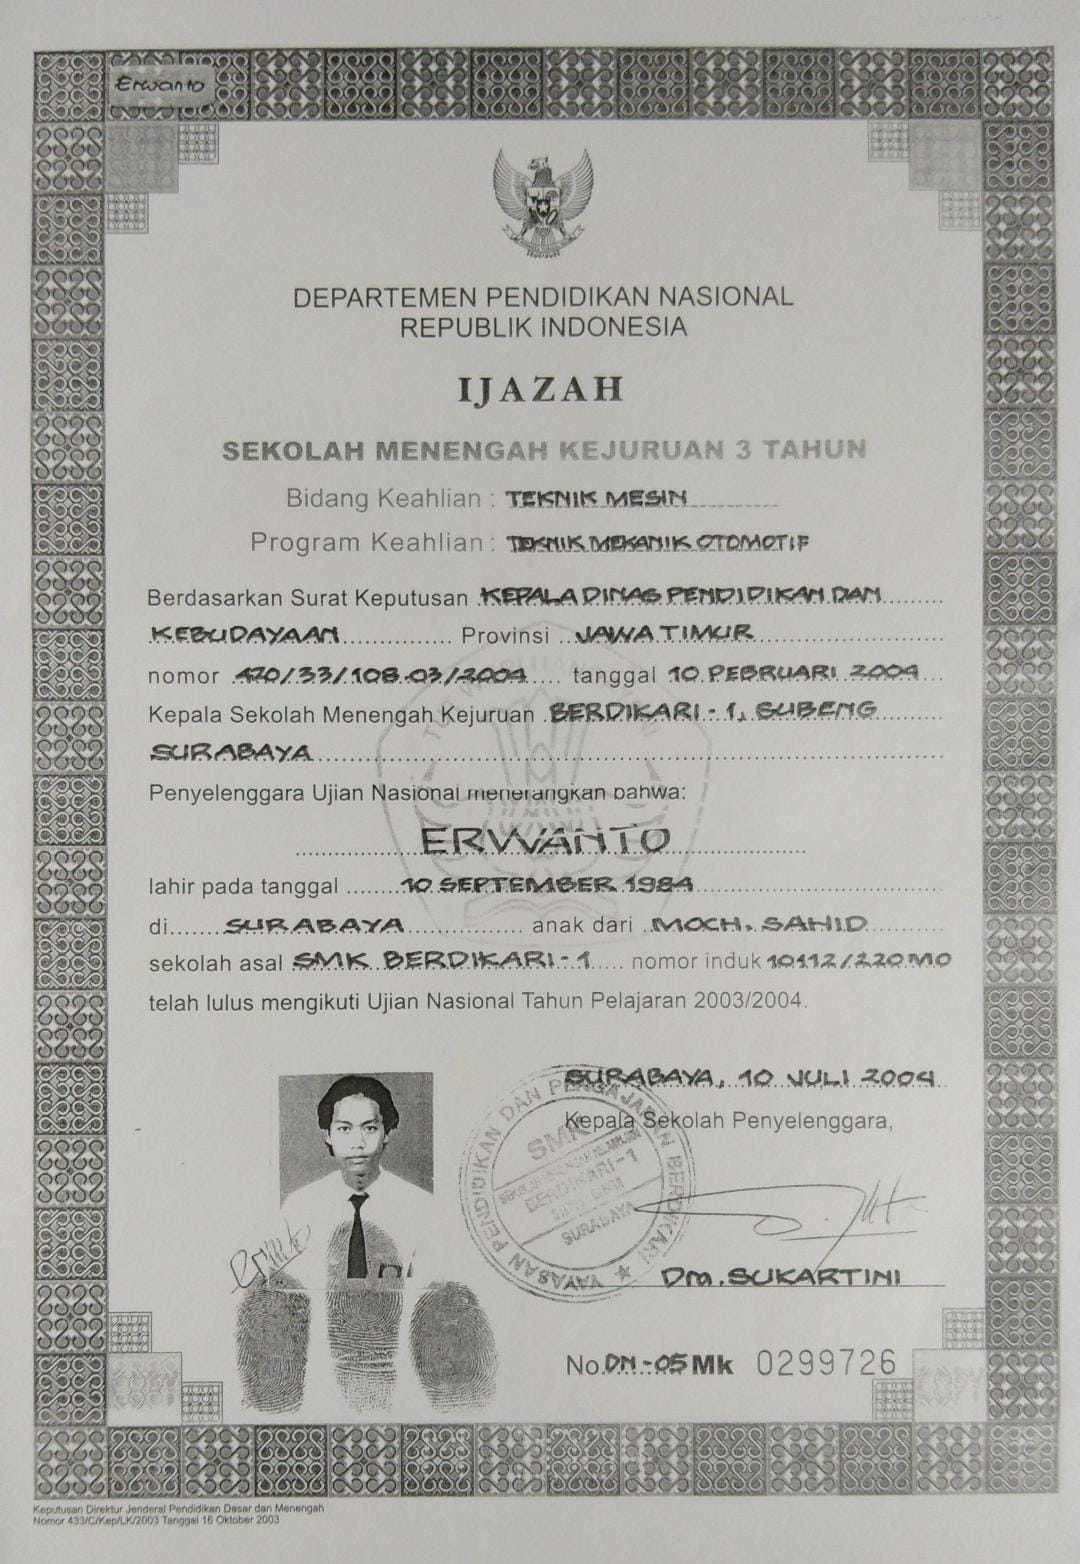 Erwanto
DEPARTEMEN PENDIDIKAN NASIONAL
REPUBLIK INDONESIA
IJAZAH
SEKOLAH MENENGAH KEJURUAN 3 TAHUN
Bidang Keahlian : TEKNIK MESIN
Program Keahlian : TEKNIK MEKANIK OTOMOTIF
Berdasarkan Surat Keputusan KEPALA DINAS PENDIDIKAN DAN
KEBUDAYAAN Provinsi JAWA TIMUR
nomor 420/33/108.03/2004 tanggal 10 PEBRUARI 2004
Kepala Sekolah Menengah Kejuruan BERDIKARI - 1, GUBENG
SURABAYA
Penyelenggara Ujian Nasional menerangkan bahwa:
ERWANTO
lahir pada tanggal 10 SEPTEMBER 1984
di SURABAYA anak dari MOCH. SAHID
sekolah asal SMK BERDIKARI - 1 nomor induk 10112/220MO
telah lulus mengikuti Ujian Nasional Tahun Pelajaran 2003/2004.
SURABAYA, 10 JULI 2004
Kepala Sekolah Penyelenggara,
YAYASAN PENDIDIKAN DAN PENGAJARAN BERDIKARI
SMK
BERDIKARI - 1
SURABAYA
Dra. SUKARTINI
No. DN.-05 Mk 0299726
Keputusan Direktur Jenderal Pendidikan Dasar dan Menengah
Nomor 433/C/Kep/LK/2003 Tanggal 16 Oktober 2003